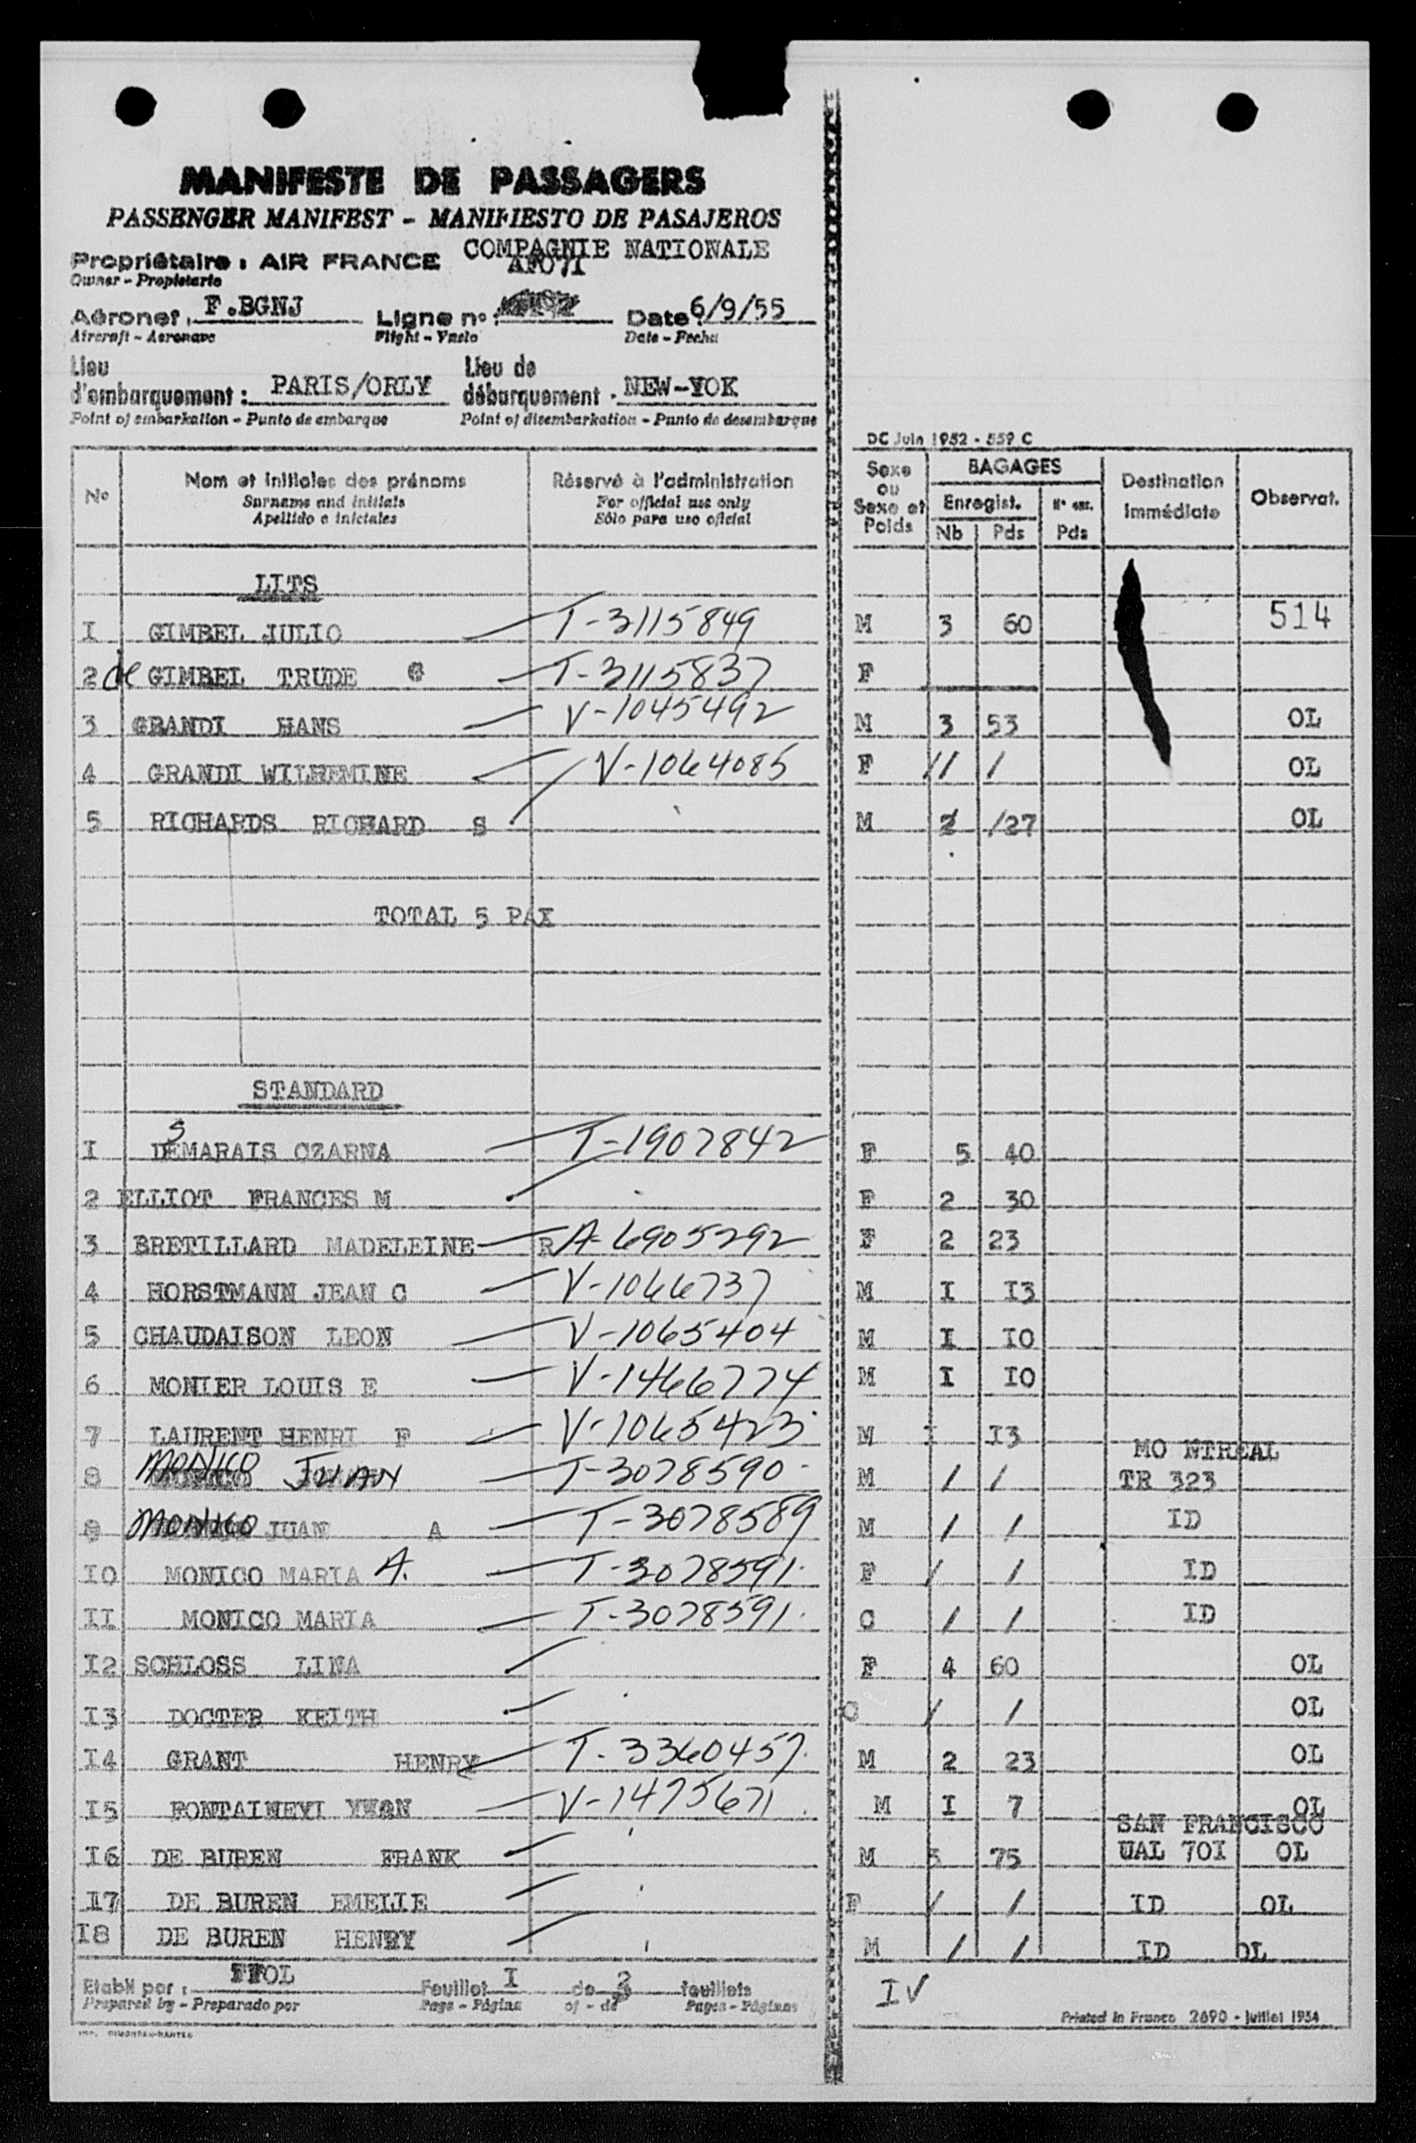 MANIFESTE DE PASSAGERS
PASSENGER MANIFEST - MANIFIESTO DE PASAJEROS
Propriétaire : AIR FRANCE COMPAGNIE NATIONALE
Owner - Propietario
AF071
Aéronef : F.BGNJ Ligne n° : Date : 6/9/55
Aircraft - Aeronave Flight - Vuelo Date - Fecha
Lieu d'embarquement : PARIS/ORLY Lieu de débarquement : NEW-YOK
Point of embarkation - Punto de embarque Point of disembarkation - Punto de desembarque
DC Juin 1952 - 559 C
N° Nom et initiales des prénoms Réservé à l'administration Sexe ou Sexe et Poids BAGAGES Destination immédiate Observat.
Surname and initials For official use only Enregist.
Apellido e iniciales Sólo para uso oficial Nb Pds Pds
LITS
I GIMBEL JULIO T-3115849 M 3 60 514
2 de GIMBEL TRUDE G T-3115837 F
3 GRANDI HANS V-1045492 M 3 53 OL
4 GRANDI WILHEMINE V-1064085 F // / OL
5 RICHARDS RICHARD S M 2 /27 OL
TOTAL 5 PAX
STANDARD
I DESMARAIS CZARNA T-1907842 F 5 40
2 ELLIOT FRANCES M F 2 30
3 BRETILLARD MADELEINE R A-6905292 F 2 23
4 HORSTMANN JEAN C V-1066737 M I I3
5 CHAUDAISON LEON V-1065404 M I IO
6 MONIER LOUIS E V-1466774 M I IO
7 LAURENT HENRI F V-1065423 M I I3
MO NTREAL
8 MONICO JUAN T-3078590 M / / TR 323
9 MONICO JUAN A T-3078589 M / / ID
IO MONICO MARIA A. T-3078591 F / / ID
II MONICO MARIA T-3078591 C / / ID
I2 SCHLOSS LINA F 4 60 OL
I3 DOCTER KEITH C / / OL
I4 GRANT HENRY T-3360457 M 2 23 OL
I5 FONTAINEYI YWAN V-1475671 M I 7 OL
SAN FRANCISCO
I6 DE BUREN FRANK M 5 75 UAL 70I OL
I7 DE BUREN EMELIE F / / ID OL
I8 DE BUREN HENRY M / / ID OL
Etabli par : FFOL Feuillet I de 3 feuillets
Prepared by - Preparado por Page - Página of - de Pages - Páginas
IV
Printed in France 2690 - Juillet 1954